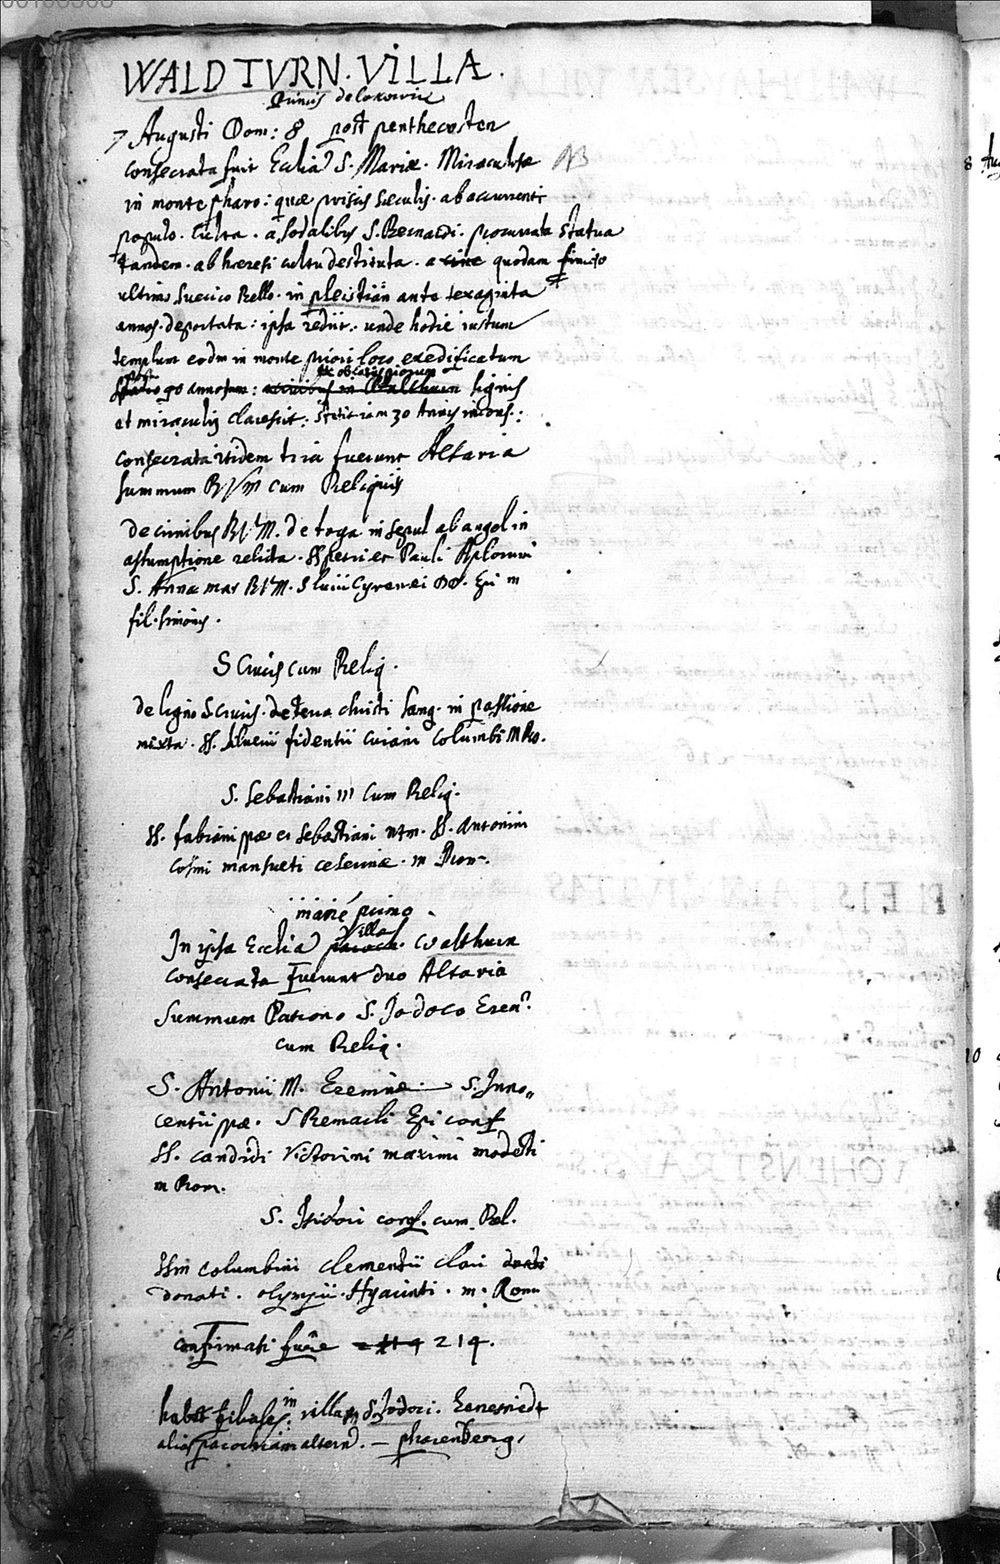 WALD TVRN. VILLA.
7 Augusti Dom: 8 post penthecosten
consecrata fuit Ecclia S. Mariæ. Miraculosæ NB
in monte pharo: quæ priscis sæculis. ab accurrenti
populo. culta. a sodalibus S. Bernardi. procurata statua
tandem. ab hæresi cultu destituta. a quodam
ultimo suecico Bello. in pleistain ante sexaginta
annos. deportata: ipsa rediit. unde hodie iustum
templum eodm in monte priori loco exedificatum
90 annosum: lignis
et miraculis clarescit: stetit iam 30 Annis incons.:
consecrata itidem tria fuerunt Altaria
summum BVM cum Reliquiis
de crinibus BVM. de toga in sepul ab angel in
assumptione relicta. SS petri et Pauli Aplorum
S. Annæ mar BVM. S Cyrenei Epi m
fil. simonis.
S Crucis cum Reliq.
de ligno S crucis. de terra christi sang. in passione
mixta. SS. fidentii columbi M Ro.
S. Sebastiani m cum Reliq.
SS. fabiani pæ et sebastiani mtm. SS. Antonini
Cosmi mansueti m Rom.
mane primo
villa
In ipsa Ecclia walthurn
consecrata fuerunt duo Altaria
Summum Patrono S. Jodoco Erem.
cum Reliq.
S. Antonii M. Eremitæ S. Inno„
centii pæ. S Remacli Epi conf
SS. candidi Victorini maximi modesti
m Rom.
S. Isidori conf. cum Rel.
SSm columbini clementii clari
donati. olympii. Hyacinti. m. Rom
confirmati fuere 214.
habet filiales. in villa S Jodoci.
alias parochiam altern. — pharenberg.